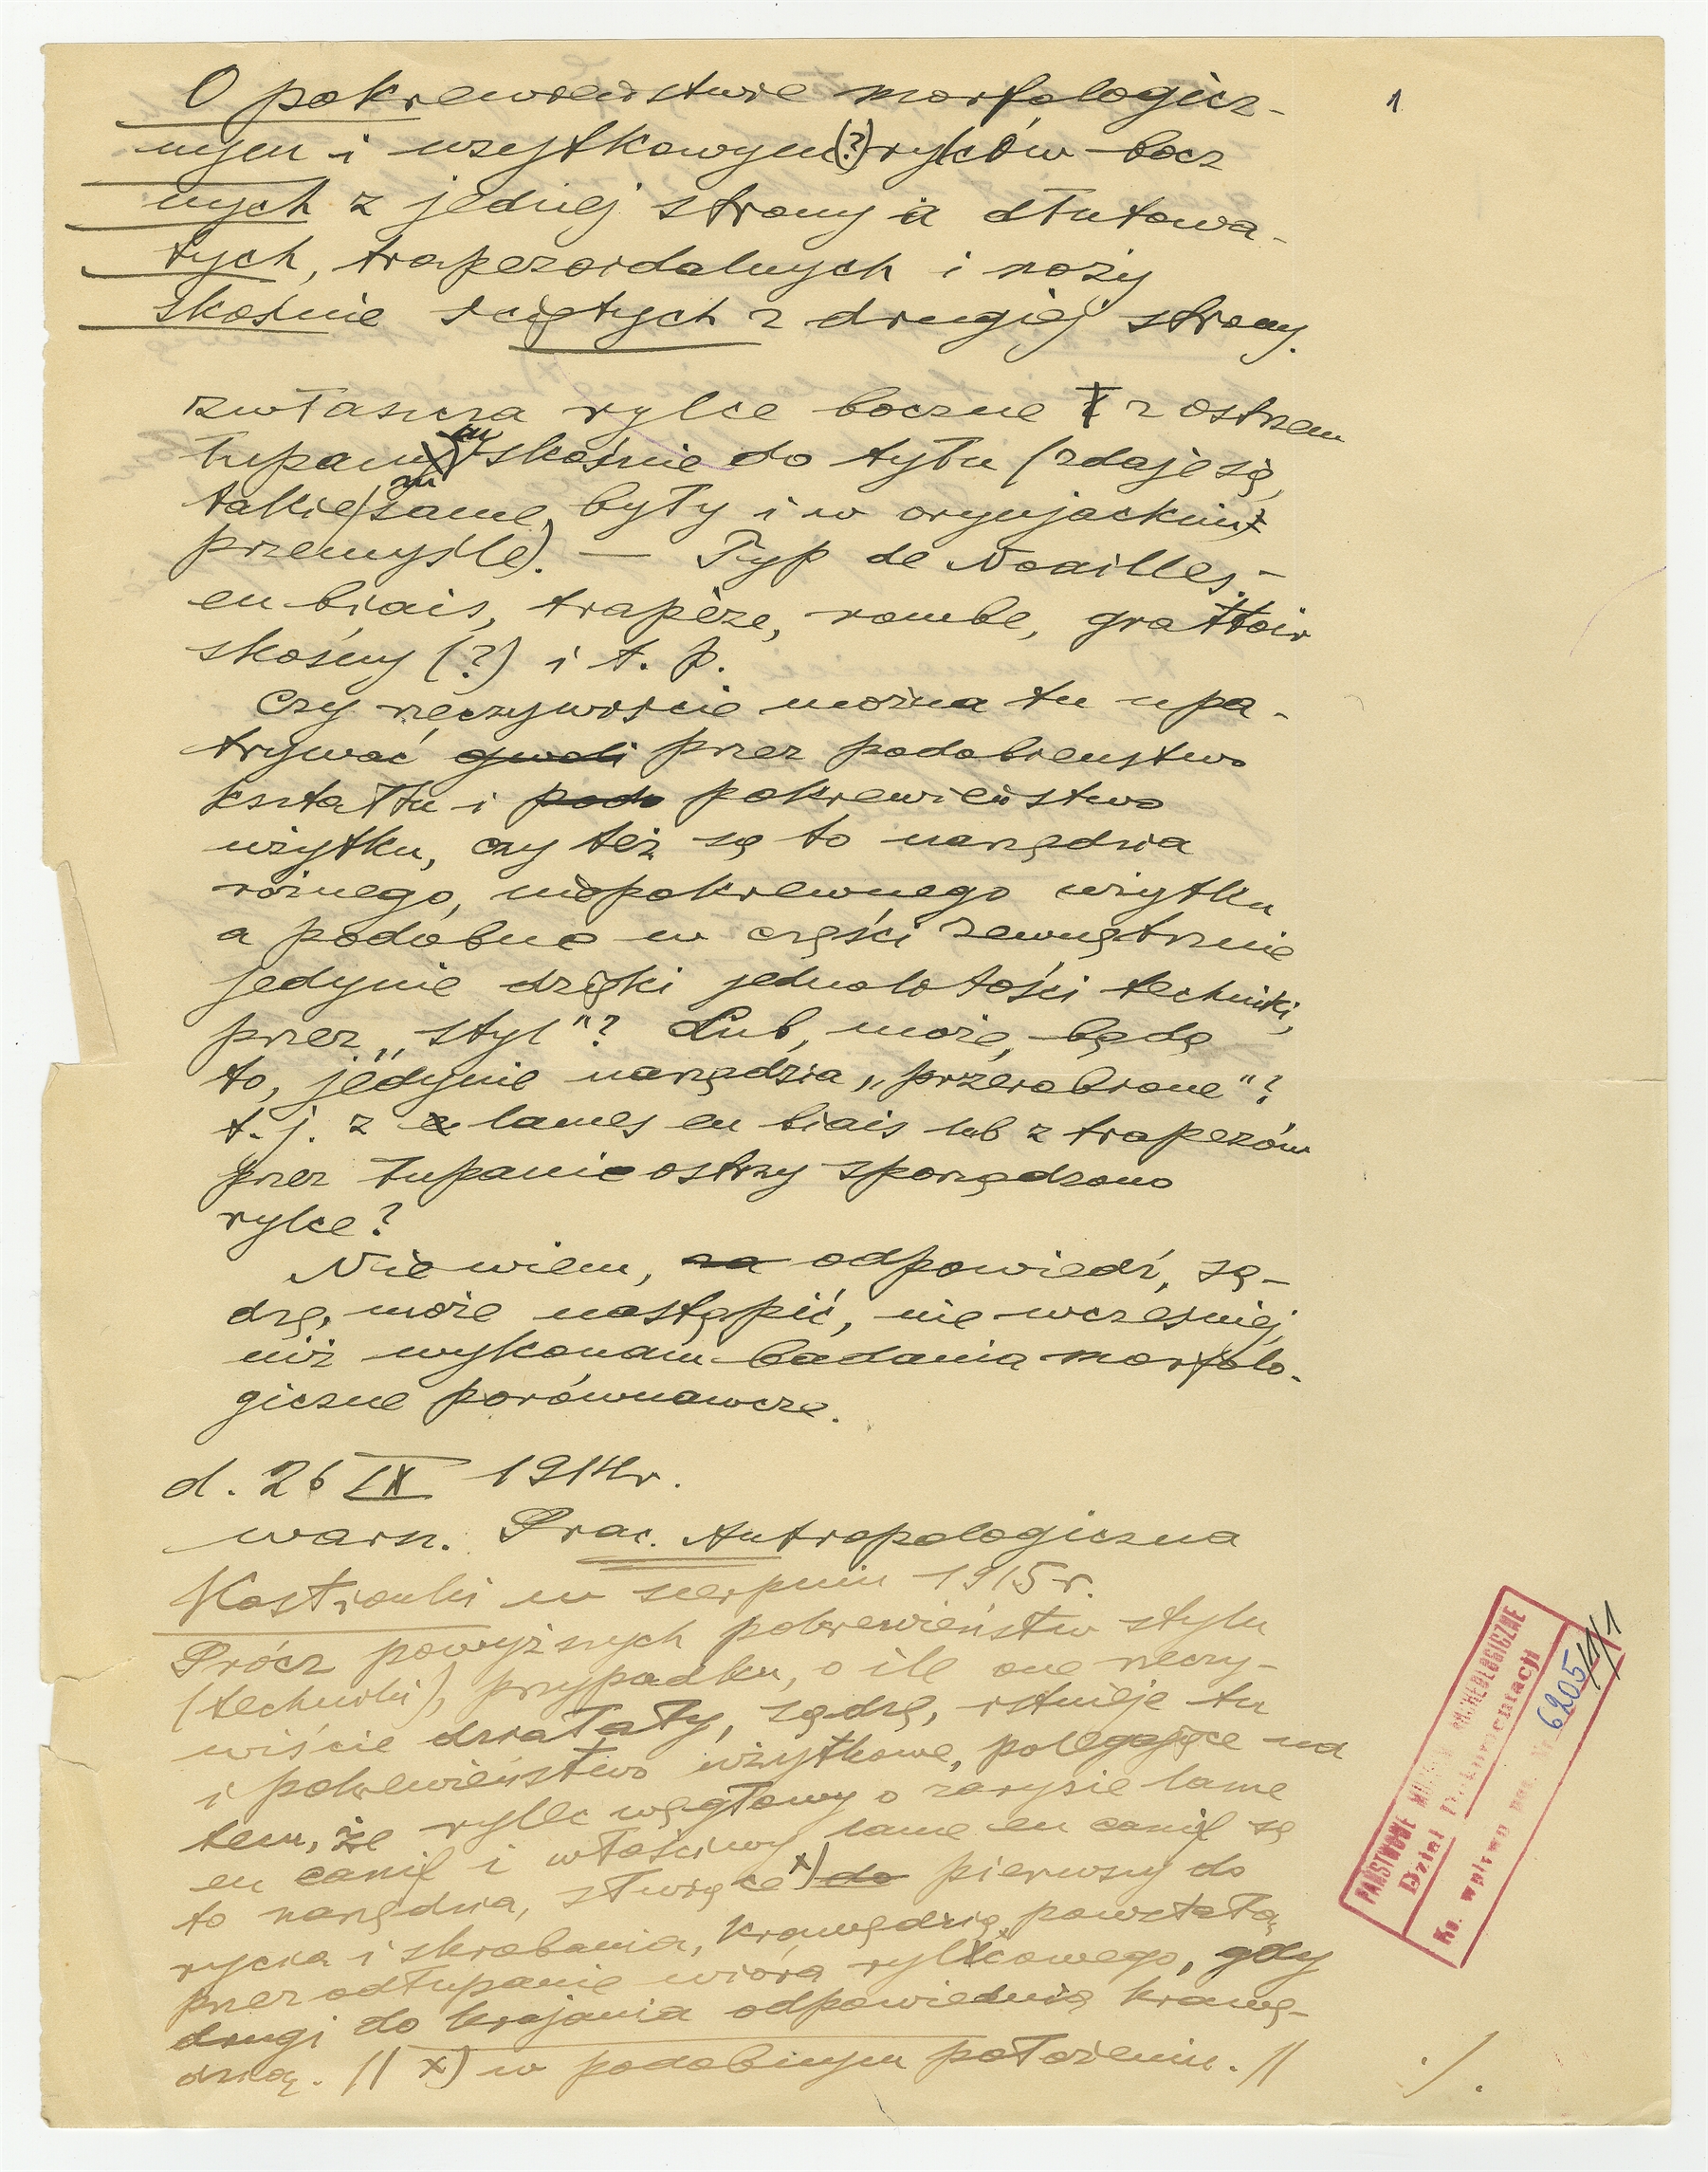 1
O pokrewieństwie morfologicz-
nym i uzytkowym (?) rylców bocz
nych z jednej strony a dłutowa-
tych, trapezoidalnych i noży
skośnie ściętych z drugiej strony.
zwłaszcza rylce boczne z ostrzem
łupanym skośnie do tyłu (zdaje się,
takie same były i w oryniackim
przemyśle). — Typ de Noailles,-
en biais, trapèze, rombe, grattoir
skośny (?) i t. p.
Czy rzeczywiście można tu upa-
trywać gwoli przez podobieństwo
kształtu i podo pokrewieństwo
użytku, czy też są to narzędzia
różnego, niepokrewnego użytku
a podobne w części zewnętrznie
jedynie dzięki jednolitości techniki,
przez „styl"? Lub, może, będą
to, jedynie narzędzia „przerobione"?
t. j. z lames en biais lub z trapezów
przez łupanie ostrzy sporządzono
rylce?
Nie wiem, za odpowiedź, są-
dzę, może nastąpić, nie wcześniej,
niż wykonam badania morfolo-
giczne porównawcze.
d. 26 IX 1914 r.
warsz. Prac. Antropologiczna
Kostionki w sierpniu 1915 r.
Prócz powyższych pokrewieństw stylu
(techniki), przypadku, o ile one rzeczy-
wiście działały, sądzę, istnieje tu
i pokrewieństwo użytkowe, polegające na
tem, że rylec węgłowy o zarysie lame
en canif i właściwy lame en canif są
to narzędzia, służące x) do pierwszy do
rycia i skrobania, krawędzią, powstałą
przez odłupanie wióra rylcowego, gdy
drugi do krajania odpowiednią krawę-
dzią. // x) w podobnym położeniu. //
./.
PAŃSTWOWE MUZEUM ARCHEOLOGICZNE
Dział Dokumentacji
Ks. wpływu poz. Nr 6205/4/1